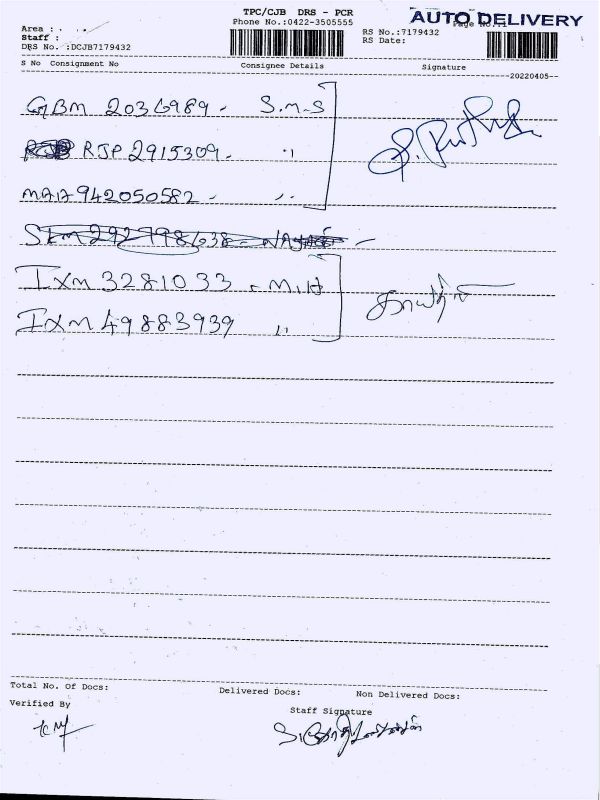 TPC/CJB DRS - PCR
AUTO DELIVERY
Area :
Phone No.:0422-3505555
Page No.:1
Staff :
RS No.:7179432
DRS No. :DCJB7179432
RS Date:
S No Consignment No Consignee Details Signature
20220405
GBM 2036989 - S.M.S
RJP 2915309 - "
MAA 942050582 - "
IXM 3281033 - M.H
IXM 49883939 "
காயத்ரி
Total No. Of Docs: Delivered Docs: Non Delivered Docs:
Verified By
Staff Signature